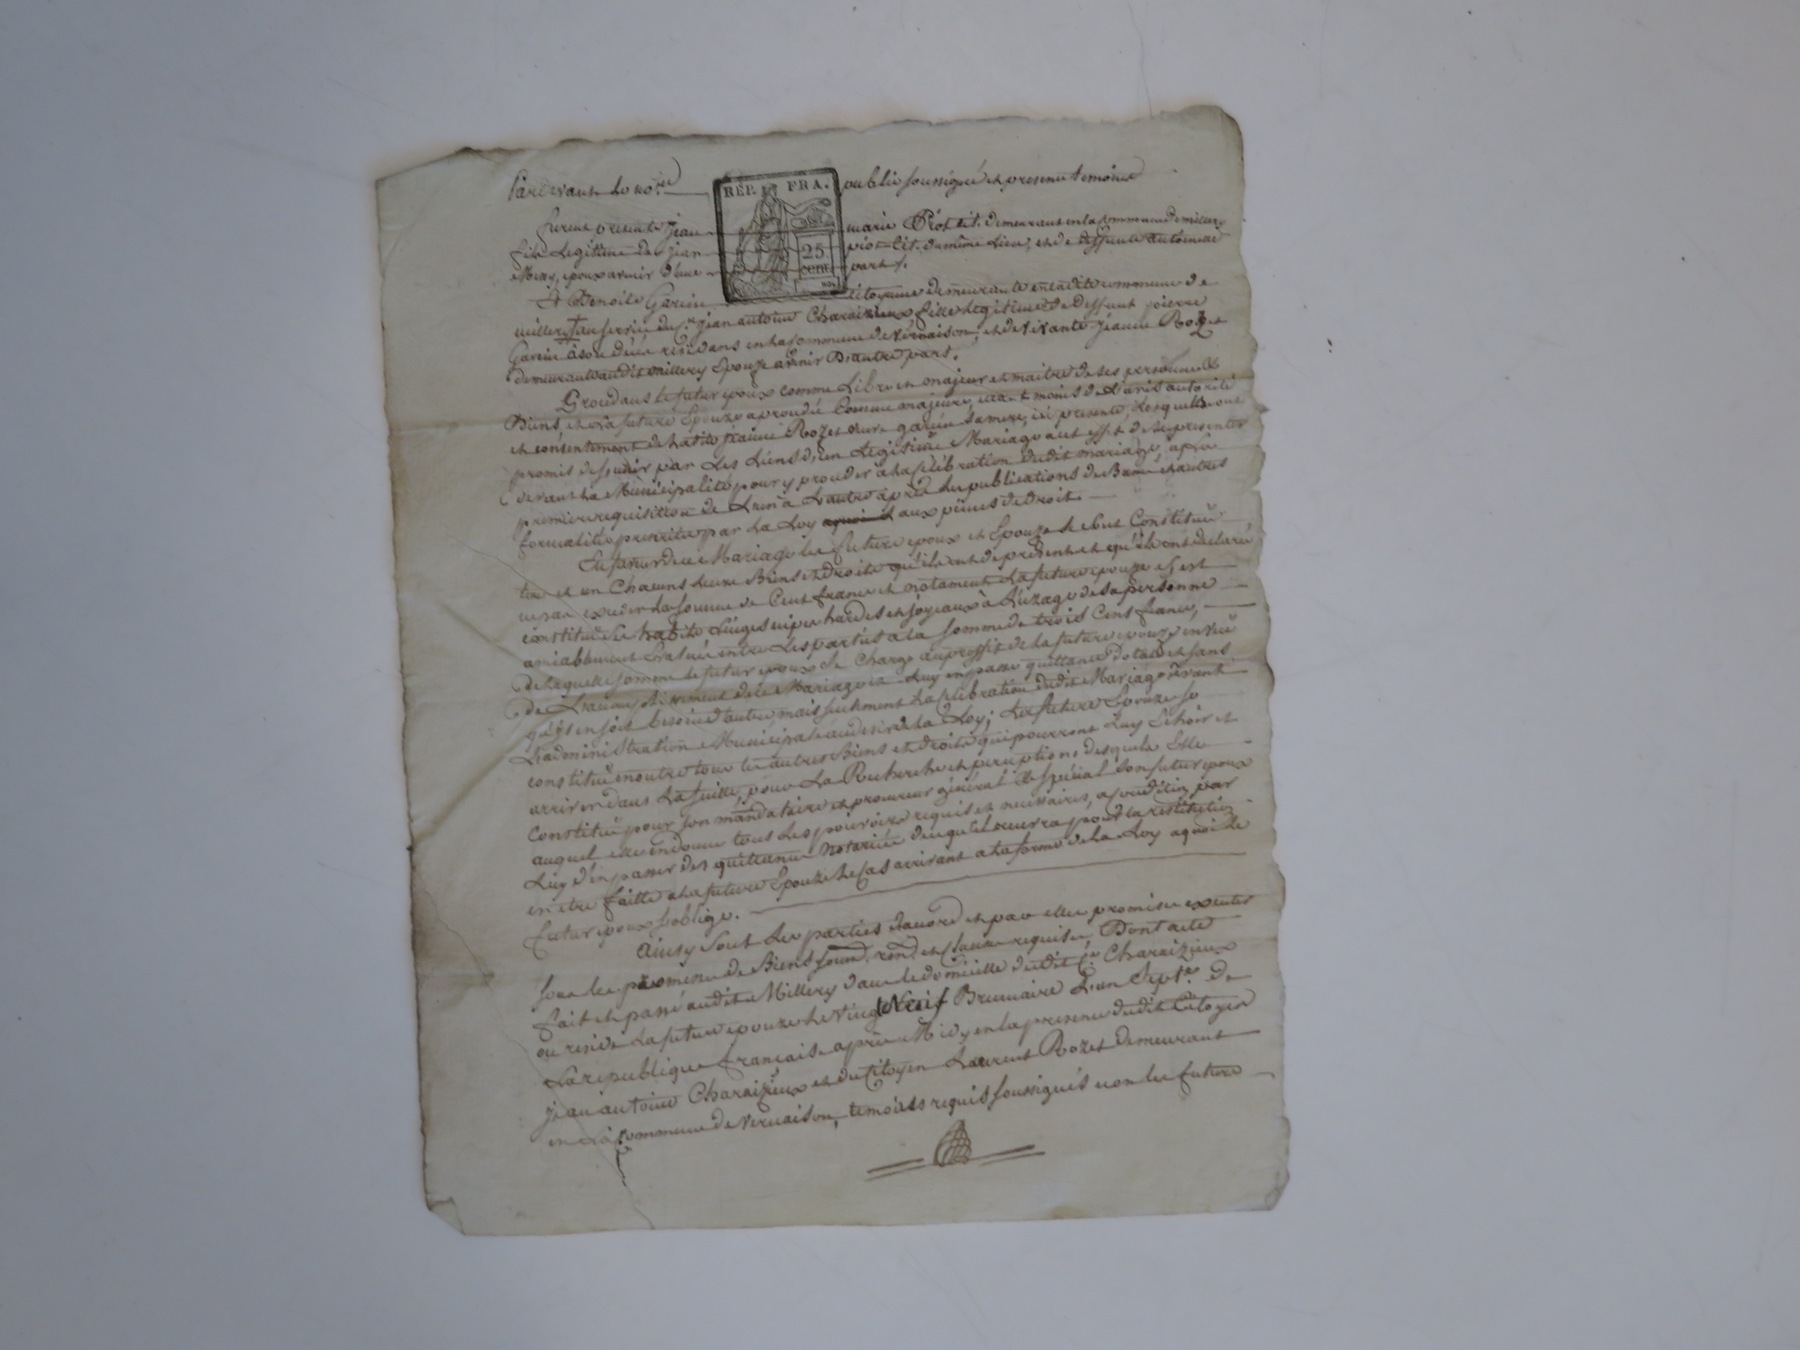 Pardevant le no.re public soussigné et presents temoins
REP. FRA.
25
cent.
furent presents jean marie Piot cit. demeurant en la commune de millery
fils legitime de jean piot cit. du même Lieu, et de deffunte antoinette
Mezy, epoux avenir d'une part.
Et Benoite Garin citoyenne demeurante en ladite commune de
millery au service du c.en jean antoine Charaizieux, fille legitime de deffunt pierre
Garin à son décés residans en la commune de Vernaison, et de vivante jeanne Rozet
demeurante audit millery Epouze avenir D'autre part.
Procedans le futur epoux comme Libre et majeur et maitre de ses personne &
Biens, et la future Epouze aproudée comme majeure, neant moins de L'avis autorité
et consentement de ladite jeanne Rozet veuve garin sa mere, ici presente, Lesquels ont
promis de s'unir par Les Liens d'un Legitime Mariage a cet effet de se presenter
devant la Municipalité pour y proceder à la celebration dudit mariage, a la
premiere requisition de L'un à L'autre après les publications de Bans et autres
formalités prescrites par La Loy aux peines de droit.
En faveur de ce Mariage les futurs epoux et Epouze se sont Constitué
tous et un Chacuns leurs Biens et droits qu'ils ont de présent et qu'ils ont declaré
ne pas exceder la somme de Cent francs et notament La future epouze s'est
constitué Ses habits Linges nipes hardes et joyeaux à L'uzage de sa personne
amiablement Evalué entre Les parties a la somme de trois Cens francs,
de laquelle somme le futur epoux se Charge au proffit de la future epouze en vüe
de L'accomplissement de ce Mariage et Luy en passe quittance dotale et sans
qu'il en soit besoin d'autre mais seulement la celebration dudit Mariage devant
L'administration Municipale au desir de la Loy; La future Epouze se
constitue en outre tous les autres Biens et droits qui pourront Luy Echoir et
arriver dans La suitte, pour La Recherche et perceptions desquels Elle
Constitue pour son mandataire et procureur général & spécial son futur epoux
auquel elle en donne tous Les pouvoirs requis et necessaires, a condition par
Luy d'en passer des quittances notariées de ce qu'il recevra pour la restitution
en etre faitte a la future Epouze le Cas arrivant a la forme de la Loy a quoi le
futur epoux s'oblige.
Ainsy Sont Les parties d'acord et par elles promis executer
sous les promesse de Biens soum. ren. et clauses requises Dont acte
fait et passé audit Millery dans le domicille dudit C.en Charaizieux
ou reside La future epouze le Vingt Neuf Brumaire L'an Sept.e de
La république française après Midy en la presence dudit Citoyen
jean antoine Charaizieux et du Citoyen Laurent Rozet demeurant
en La commune de Vernaison, temoins requis soussignés non les futurs